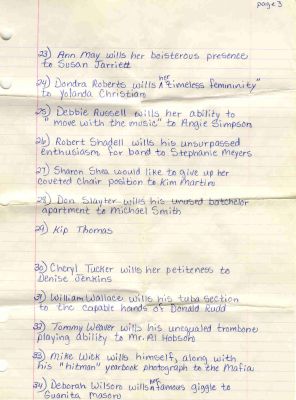 page 3
23) Ann May wills her boisterous presence
to Susan Jarriett
24) Dondra Roberts wills her "timeless femininity"
to Yolanda Christian
25) Debbie Russell wills her ability to
"move with the music" to Angie Simpson
26) Robert Shadell wills his unsurpassed
enthusiasm for band to Stephanie Meyers
27) Sharon Shea would like to give up her
coveted chair position to Kim Martin
28) Don Slayter wills his unused batchelor
apartment to Michael Smith
29) Kip Thomas
30) Cheryl Tucker wills her petiteness to
Denise Jenkins
31) William Wallace wills his tuba section
to the capable hands of Donald Rudd
32) Tommy Weaver wills his unequaled trombone
playing ability to Mr. Al Hobson
33) Mike Wick wills himself, along with
his "hitman" yearbook photograph to the Mafia
34) Deborah Wilson wills her famous giggle to
Guanita Mason